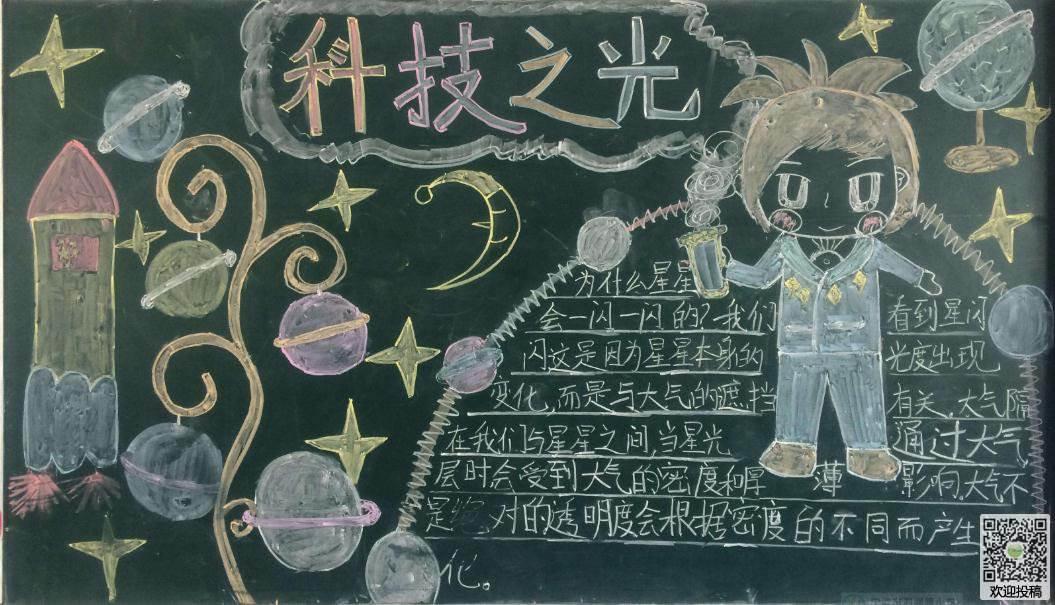 科技之光
为什么星星
会一闪一闪的?我们看到星闪
闪这是因为星星本身的光度出现
变化,而是与大气的遮挡有关.大气隔
在我们与星星之间,当星光通过大气
层时会受到大气的密度和厚薄影响.大气不
是绝对的透明度会根据密度的不同而产生
化。
欢迎投稿